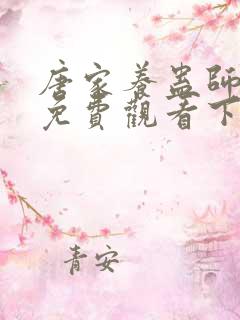 唐家養蠱師
免費觀看下
青安